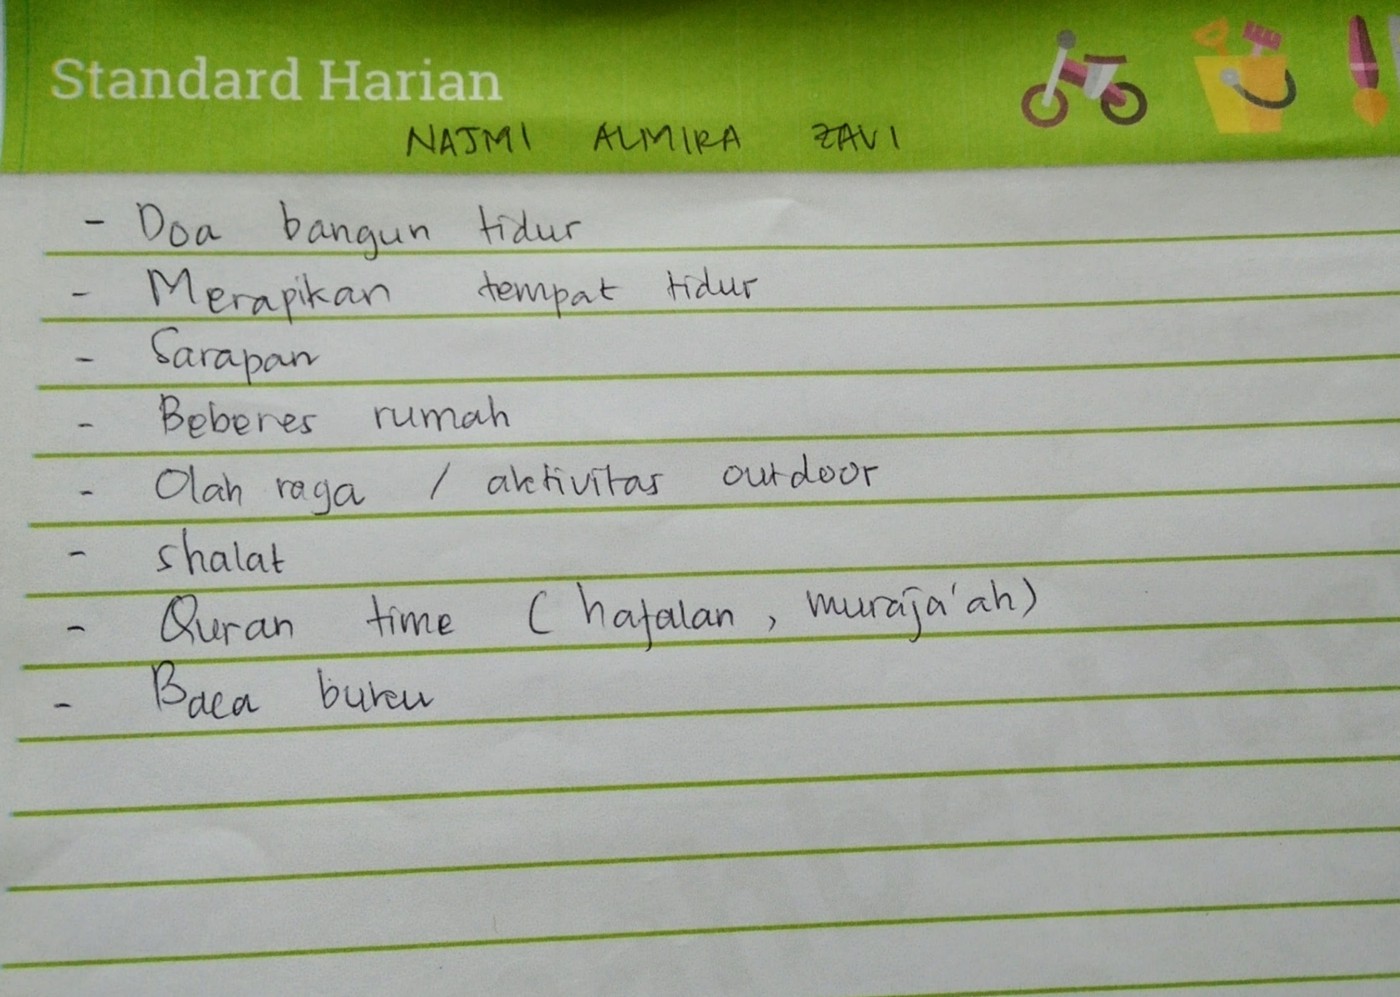 Standard Harian
NAJMI ALMIRA ZAVI
- Doa bangun tidur
- Merapikan tempat tidur
- Sarapan
- Beberes rumah
- Olah raga / aktivitas outdoor
- shalat
- Quran time ( hafalan , muraja'ah)
- Baca buku